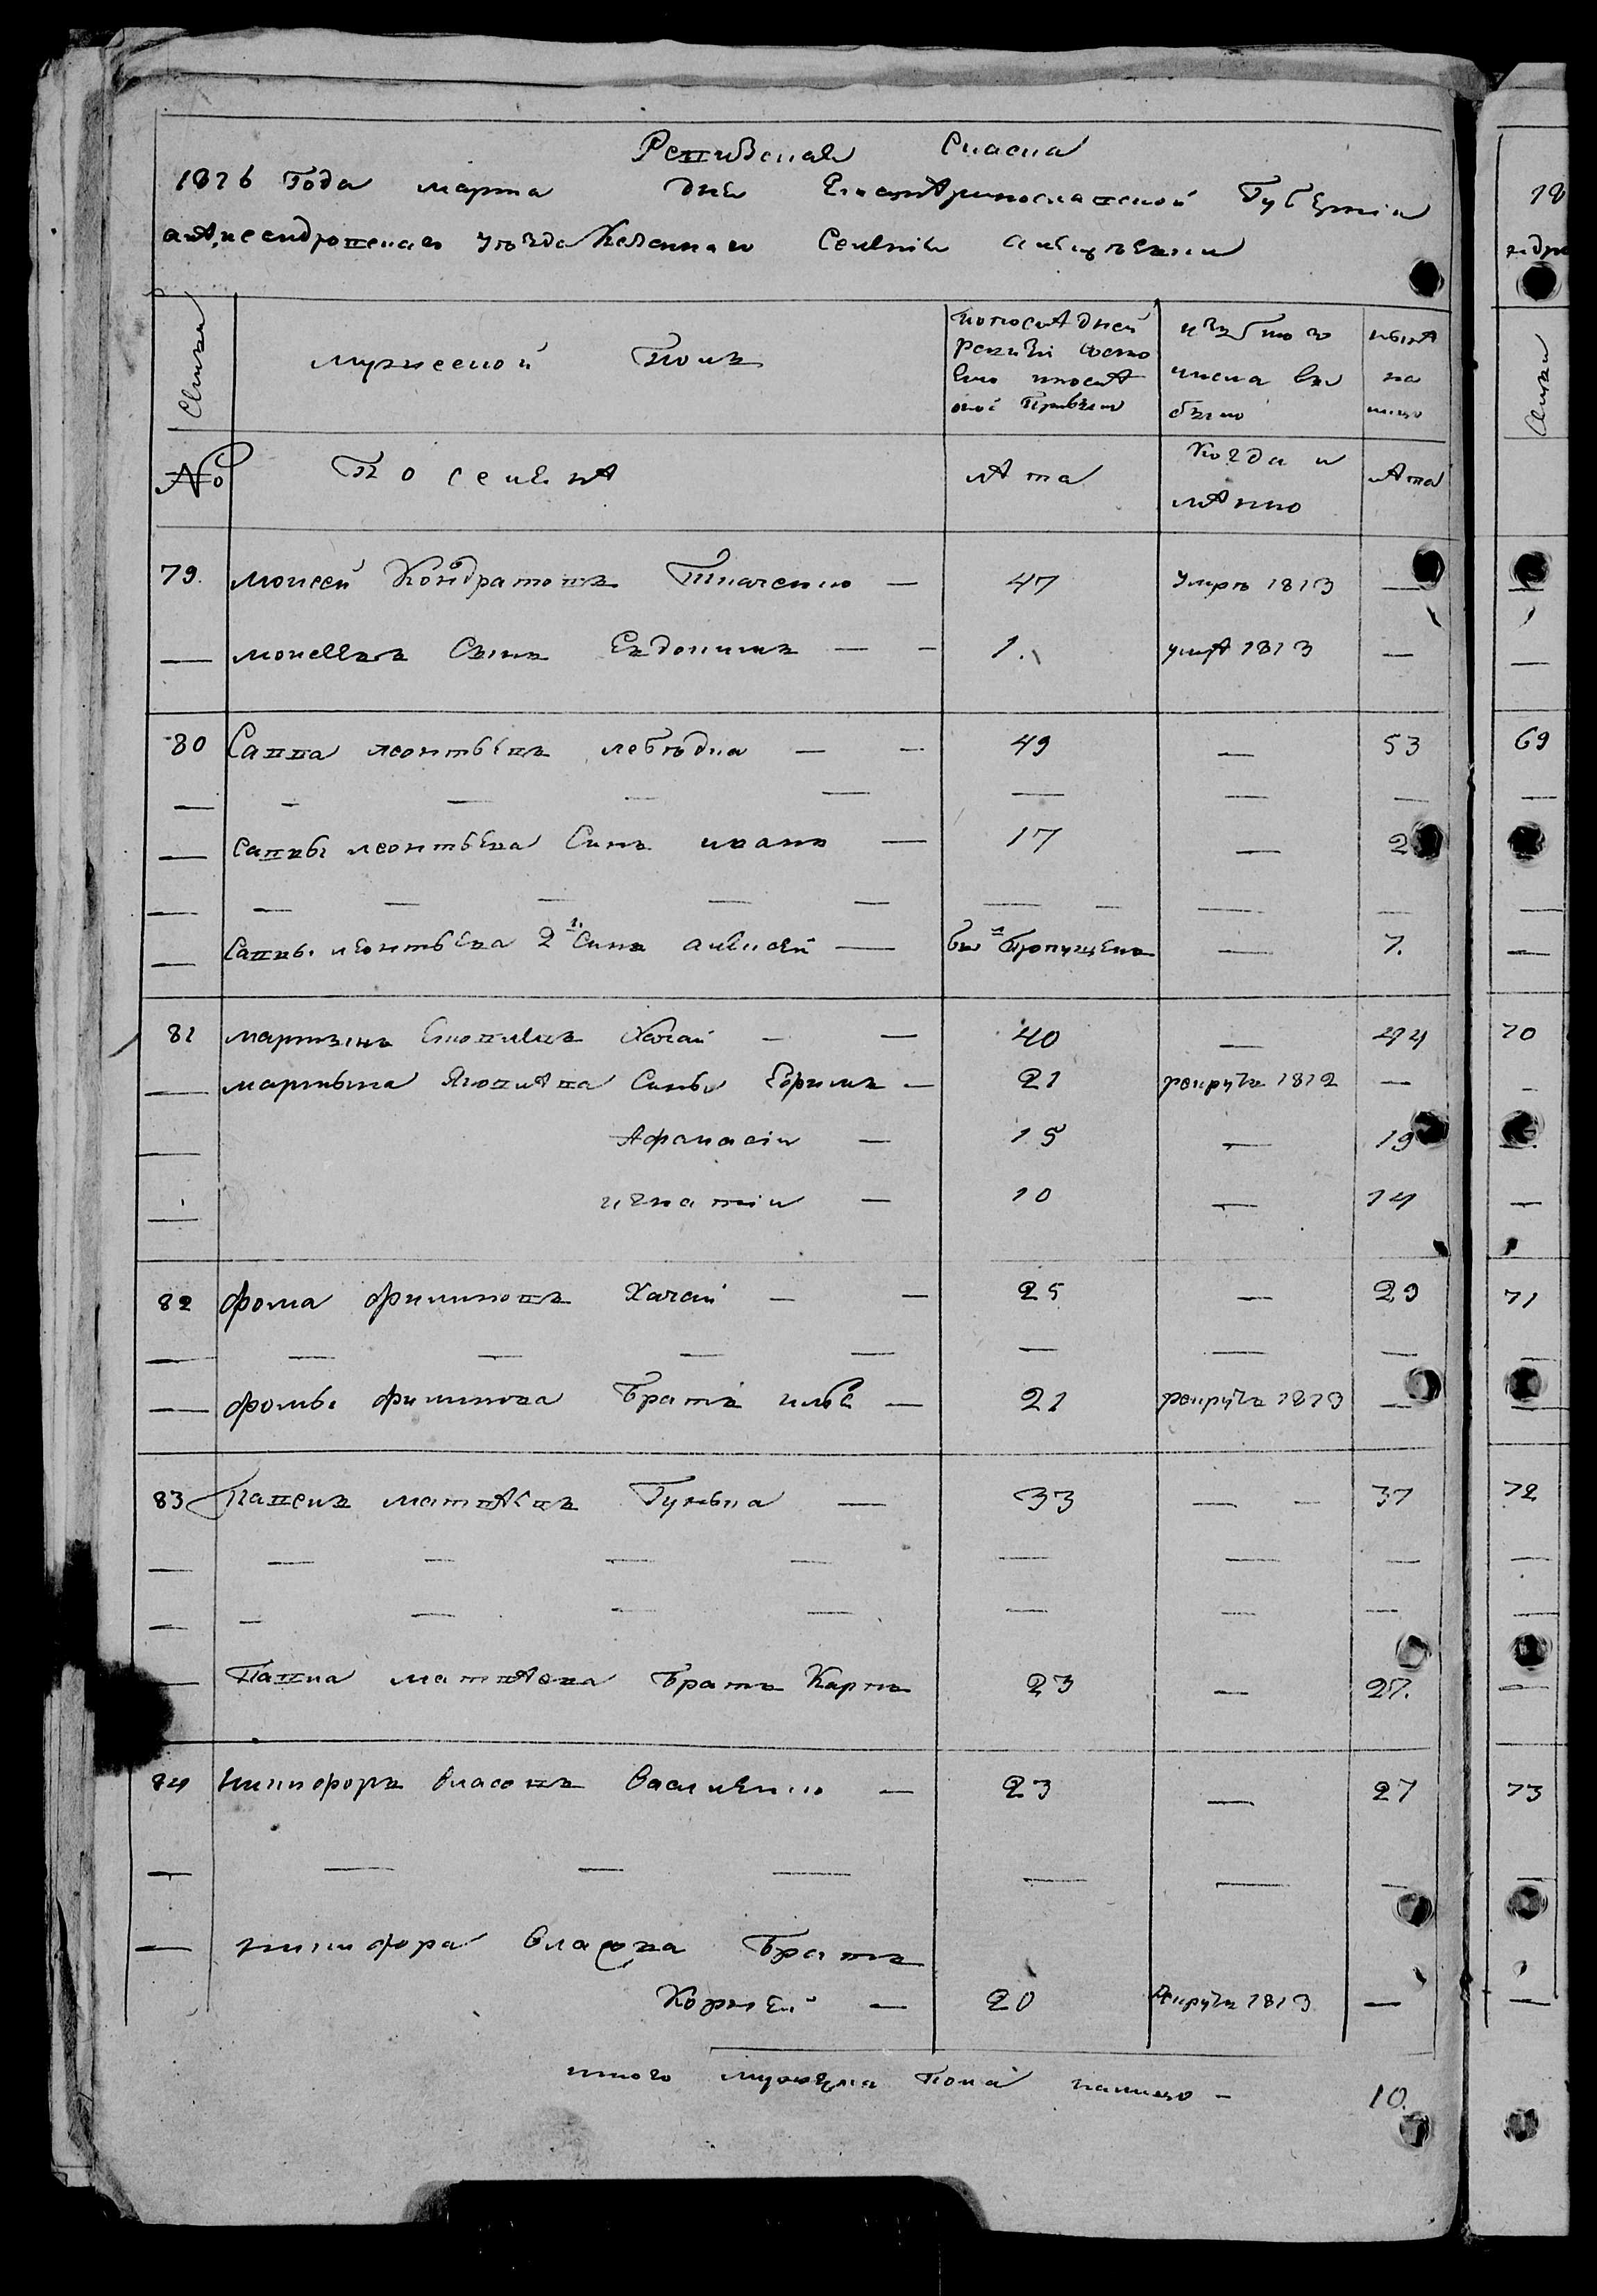 Ревизская Сказка
1816 Года марта дня Екатеринославской Губернии
александровскаго уезда Казеннаго Селения
Семьи
мужеской Полъ
по последней ревизии состояло и после оной прибыло
изъ того числа выбыло
ныне на лицо
№ Поселяне
лета
Когда именно
лета
79. моисей Кондратовъ Ткаченко — 47 умре 1813 —
— моисеевъ Сынъ Евдокимъ — — 1. умре 1813 —
80 Савва леонтьевъ лебедка — — 49 — 53
— — — — — — — —
— саввы леонтьева Синъ иванъ — 17 — 2
— — — — — — — — — —
— саввы леонтьева 2й Синъ алексей — пропущенъ — 7.
81 мартынъ Яковлевъ Хачай — — 40 — 44
— мартына Яковлева Сины Ефримъ — 21 рекрутъ 1812 —
— Афанасии — 15 — 19
— игнатии — 10 — 14
82 фома филиповъ Хачай — — 25 — 29
— — — — — — — —
— фомы филипова Братъ илья — 21 рекрутъ 1813 —
83 Павелъ матвеевъ Гулька — 33 — — 37
— — — — — — — —
— — — — — — — —
— Павла матвеева Братъ Карпъ 23 — 27.
84 никифоръ власовъ Василенко — 23 — 27
— — — — — — —
— никифора власова Братъ
Корней — 20 рекрутъ 1813 —
итого мужеска Пола налицо — 10.
18
69
70
71
72
73